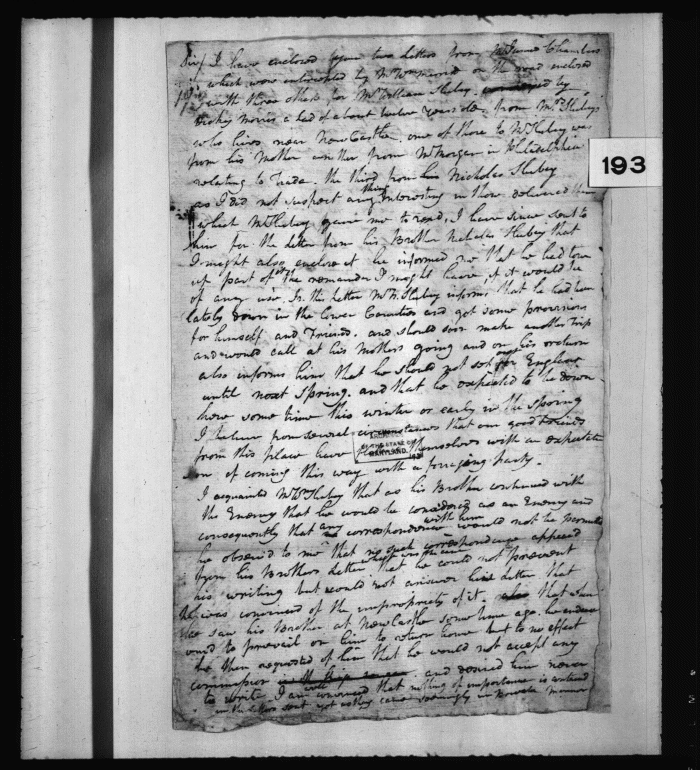 Sir/ I have enclosed you two letters from Mr James Chambers
which were intercepted by on the road enclosed
with three others for Mr William Slubey by
Morris a lad of about twelve years old, from Mrs Slubeys
who lives near New Castle. one of those to Mr Slubey was
from his Mother another from Mr Morgan in Philadelphia
relating to Trade. the third from his Nicholas Slubey
as I did not suspect any thing Interesting in them delivered them
which Mr Slubey gave me to read, I have since sent to
him for the letter from his Brother Nicholas Slubey that
I might also enclose it he informed me that he had tore
up part of it the remainder I might have if it would be
of any use. In the letter Mr N. Slubey informs that he had been
lately down in the lower Counties and got some provisions
for himself and Friend. and should soon make another trip
and would call at his Mothers going and on his return
also informs him that he should not set off for England
until next Spring. and that he expected to be down
here some time this winter or early in the Spring
I believe from several circumstances that our good Friends
from this place have themselves with an expectation
of coming this way with a foraging party.
I acquainted Mr Wm Slubey that as his Brother continued with
the Enemy that he would be considered as an Enemy and
consequently that any correspondence with him would not be permitted
he observed to me that no such correspondence appeared
from his Brothers letter that he could not prevent
his writing but would not answer his letter that
he was convinced of the impropriety of it. that when
he saw his Brother at New Castle some time ago. he endeavoured
to prevail on him to return home but to no effect
he then requested of him that he would not accept any
commission and desired him never
to write I am well convinced that nothing of importance is contained
in the letters sent yet as they came seemingly in
193
THE STATE OF
MARYLAND